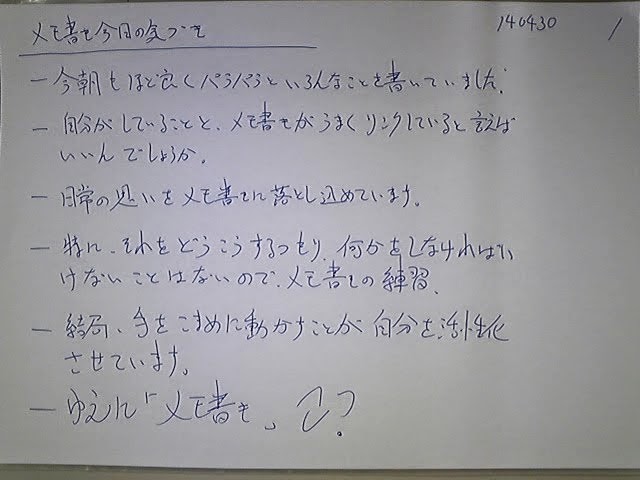 メモ書き今日の気づき
140430
1
― 今朝もほど良くパラパラといろんなことを書いていました。
― 自分がしていることと、メモ書きがうまくリンクしていると言えば
いいんでしょうか。
― 日常の思いをメモ書きに落とし込めています。
― 特に、それをどうこうするつもり、何かをしなければい
けないことはないので、メモ書きの練習。
― 結局、手をこまめに動かすことが自分を活性化
させています。
― ゆえに「メモ書き」